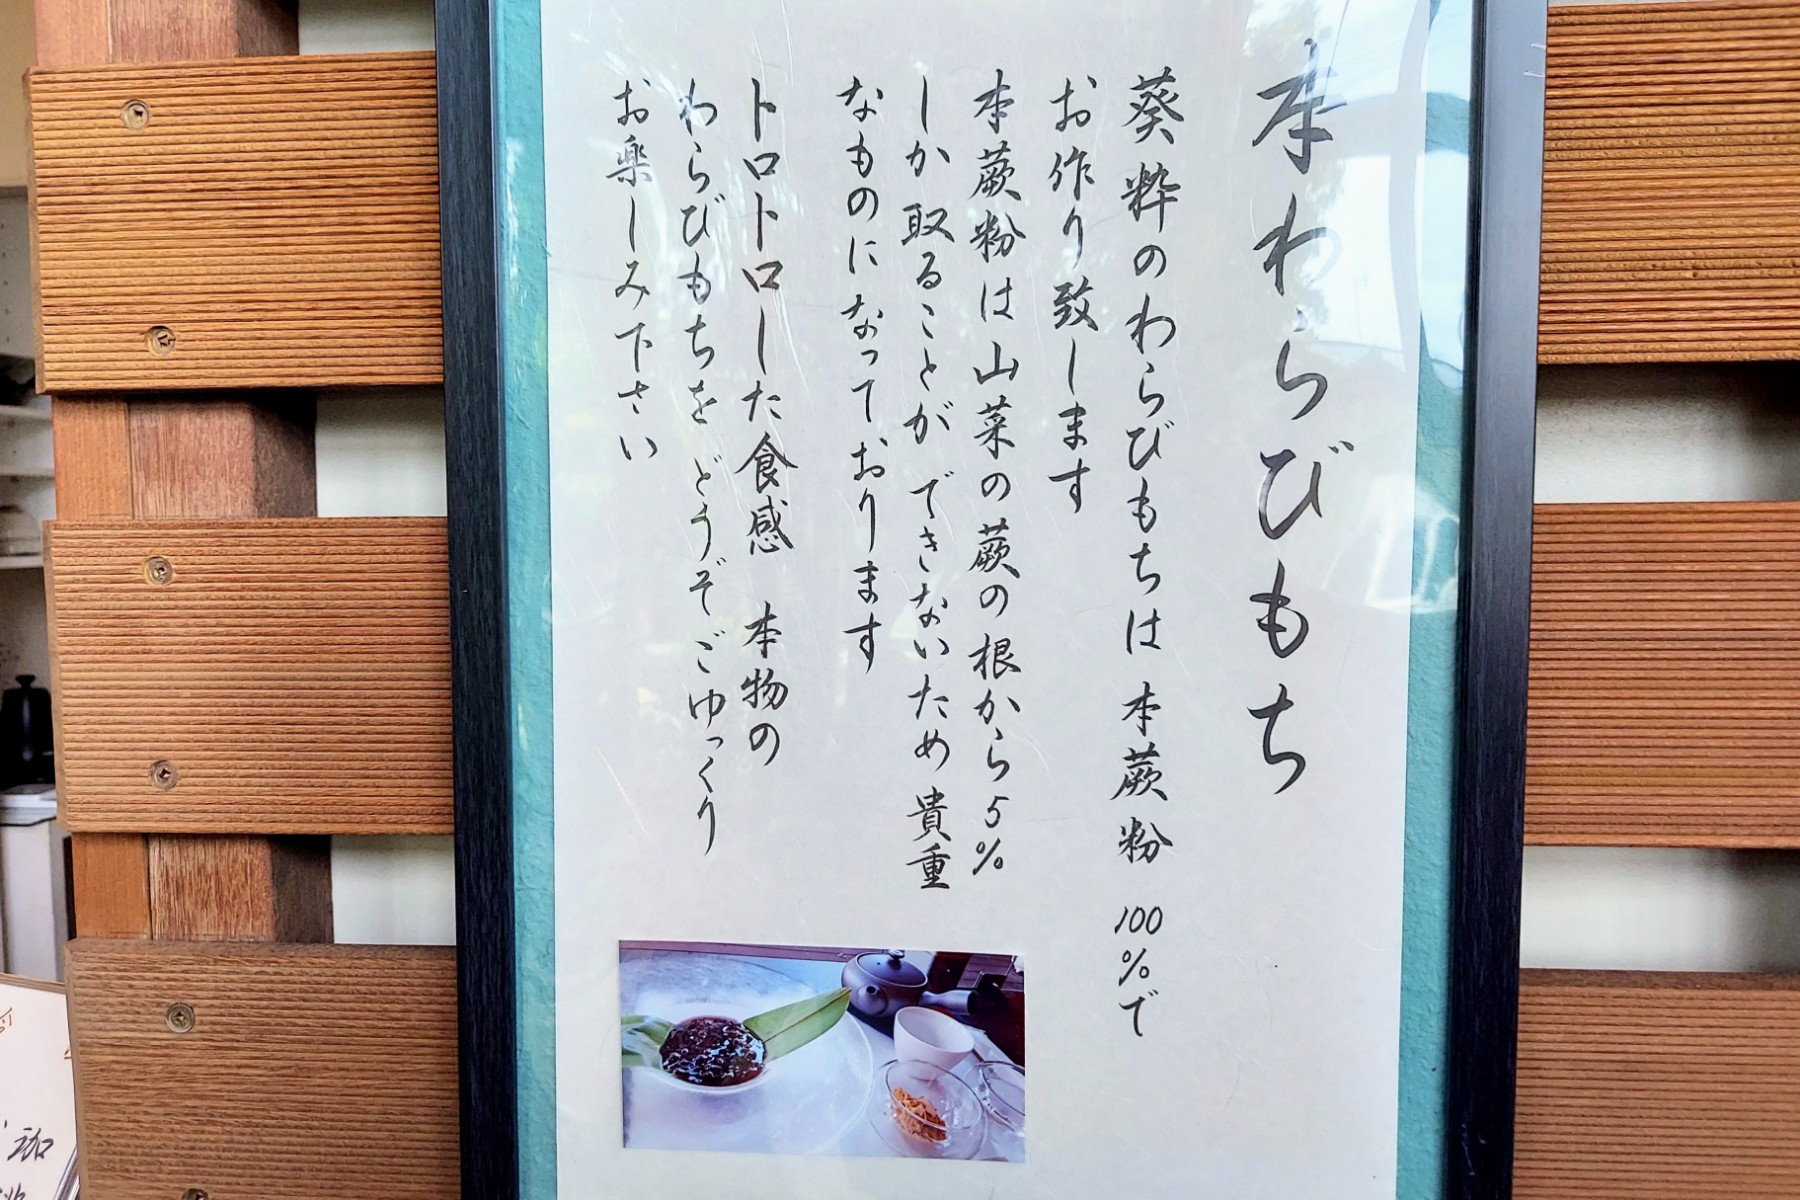 本わらびもち
葵粋のわらびもちは 本蕨粉 100%で
お作り致します
本蕨粉は山菜の蕨の根から5%
しか取ることが できないため 貴重
なものになっております
トロトロした食感 本物の
わらびもちを どうぞごゆっくり
お楽しみ下さい